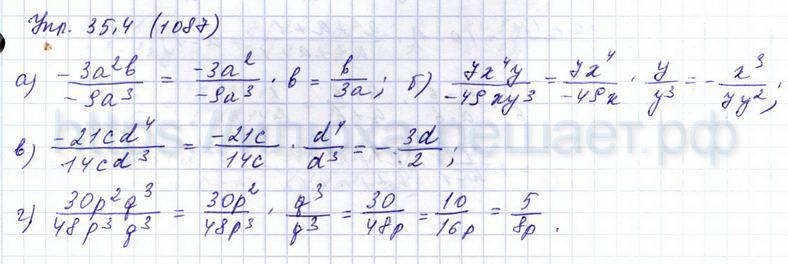 Упр. 35,4 (1087)
а) -3a²b/-9a³ = -3a²/-9a³ · b = b/3a; б) 7x⁴y/-49xy³ = 7x⁴/-49x · y/y³ = - x³/7y²;
в) -21cd⁴/14cd³ = -21c/14c · d⁴/d³ = - 3d/2;
г) 30p²q³/48p³q³ = 30p²/48p³ · q³/q³ = 30/48p = 10/16p = 5/8p.